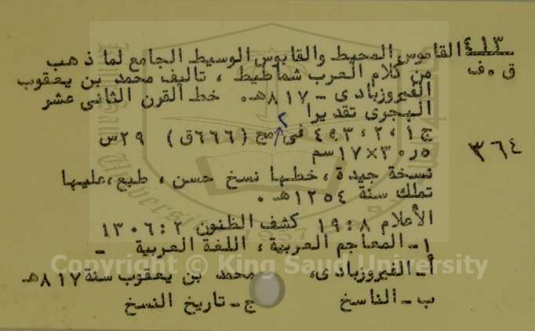 ٤١٣ القاموس المحيط والقابوس الوسيط الجامع لما ذهب
ق ٠ف من كلام العرب شماطيط ، تاليف محمد بن يعقوب
الفيروزبادى - ٨١٧هـ٠ خط القرن الثانى عشر
الهجرى تقديرا
ج١ ،٢ ،٣ ،٤ فى ٢ مج (٦٦٦ق) ٢٩س
٣٦٤
٣٠×١٧سم
نسخة جيدة ، خطها نسخ حسن ، طبع ،عليها
تملك سنة ١٢٥٤هـ ٠
الأعلام ١٩:٨ كشف الظنون ١٣٠٦:٢
١- المعاجم العربية ، اللغة العربية -
أ- الفيروزبادى، محمد بن يعقوب سنة ٨١٧هـ
ب- الناسخ ج- تاريخ النسخ
Copyright © King Saud University